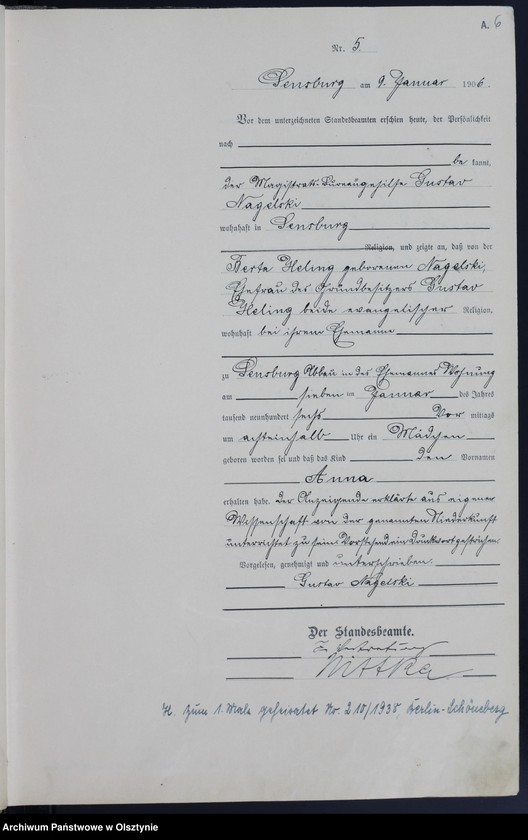 A. 6
Nr. 5.
Sensburg am 9. Januar 1906.
Vor dem unterzeichneten Standesbeamten erschien heute, der Persönlichkeit
nach
be kannt,
der Magistrats-Bureaugehilfe Gustav
Nagelski
wohnhaft in Sensburg
Religion, und zeigte an, daß von der
Berta Heling geborenen Nagelski,
Ehefrau des Grundbesitzers Gustav
Heling beide evangelischer Religion,
wohnhaft bei ihrem Ehemanne
zu Sensburg Abbau in des Ehemannes Wohnung
am sieben ten Januar des Jahres
tausend neunhundert sechs Vor mittags
um achteinhalb Uhr ein Mädchen
geboren worden sei und daß das Kind den Vornamen
Anna
erhalten habe. Der Anzeigende erklärte aus eigener
Wissenschaft von der genannten Niederkunft
unterrichtet zu sein. Vorstehend ein Druckwort gestrichen.
Vorgelesen, genehmigt und unterschrieben.
Gustav Nagelski
Der Standesbeamte.
In Vertretung
Wittka
H. zum 1. Male geheiratet Nr. 210/1938, Berlin-Schöneberg
Archiwum Państwowe w Olsztynie